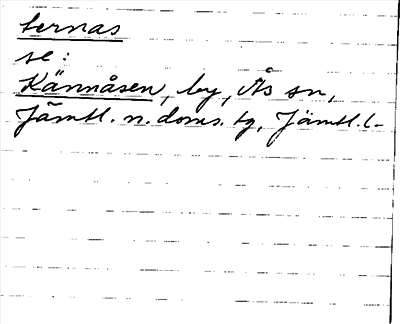 ternas
se:
Kännåsen, by, Ås sn,
Jämtl. n. doms. tg, Jämtl. l-